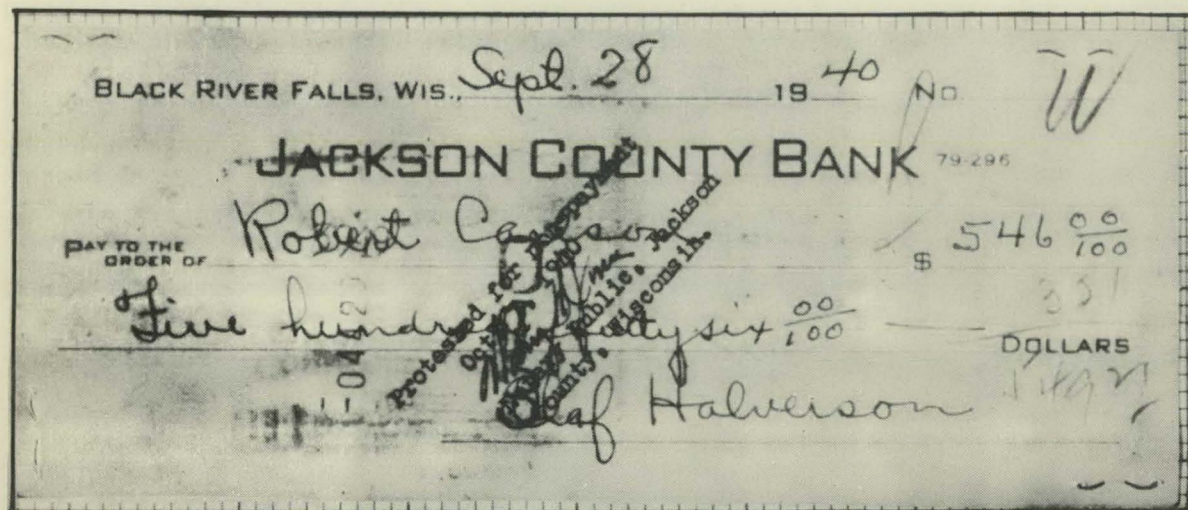 BLACK RIVER FALLS, WIS., Sept. 28 1940 No. W
JACKSON COUNTY BANK 79-296
PAY TO THE ORDER OF Robert Carlson $ 546 00/100
Five hundred forty six 00/100 DOLLARS
Olaf Halverson
Protested for Nonpayment
Oct 1940
Notary Public, Jackson
County, Wisconsin.